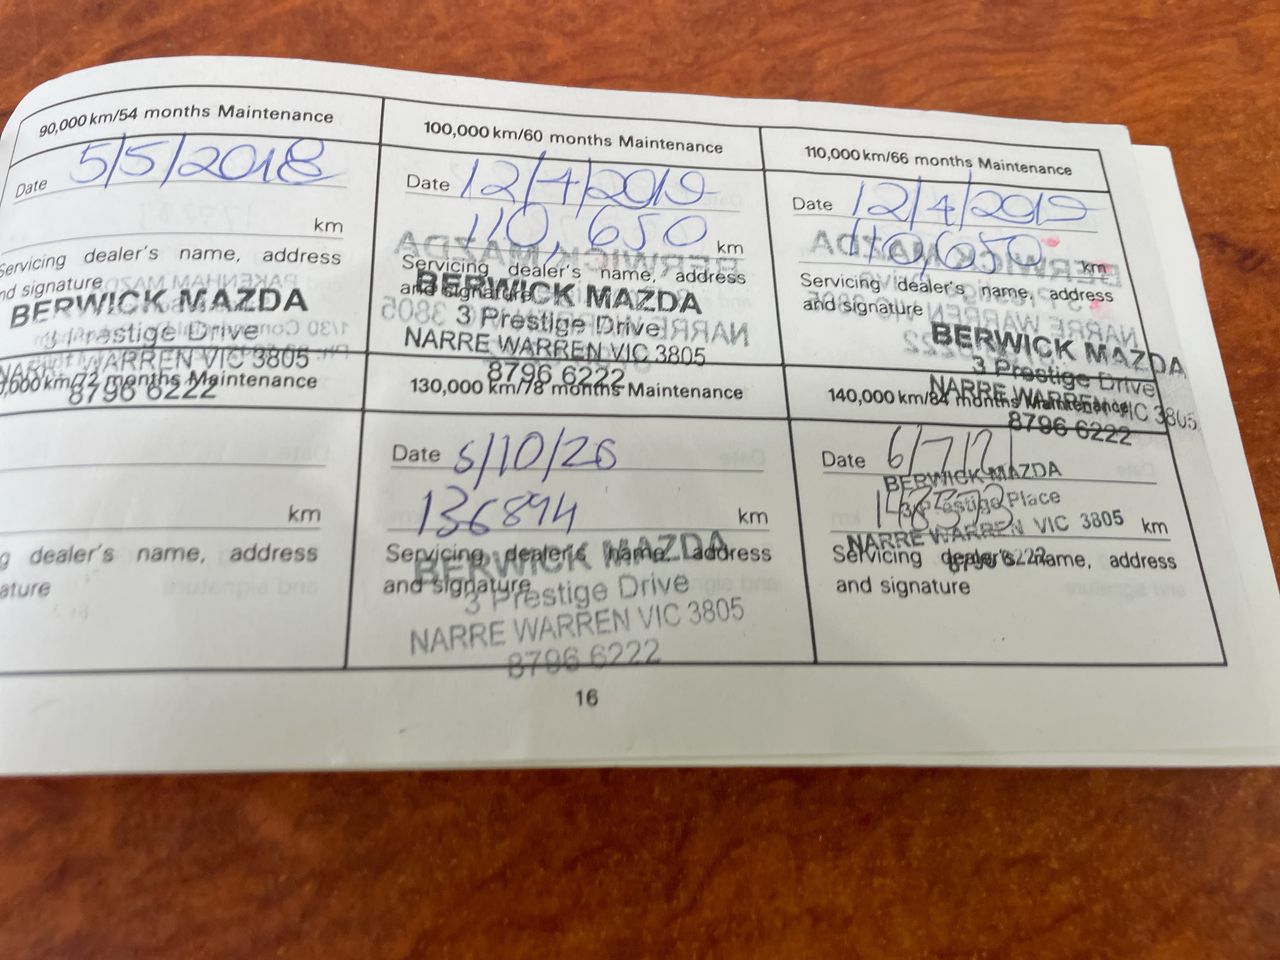 90,000 km/54 months Maintenance
Date 5/5/2018
km
Servicing dealer's name, address
nd signature
BERWICK MAZDA
3 Prestige Drive
NARRE WARREN VIC 3805
8796 6222
100,000 km/60 months Maintenance
Date 12/4/2019
110,650 km
Servicing dealer's name, address
and signature
BERWICK MAZDA
3 Prestige Drive
NARRE WARREN VIC 3805
8796 6222
110,000 km/66 months Maintenance
Date 12/4/2019
110,650 km
Servicing dealer's name, address
and signature
BERWICK MAZDA
3 Prestige Drive
NARRE WARREN VIC 3805
8796 6222
,000 km/72 months Maintenance
km
g dealer's name, address
ature
130,000 km/78 months Maintenance
Date
136894 km
Servicing dealer's name, address
and signature
BERWICK MAZDA
3 Prestige Drive
NARRE WARREN VIC 3805
8796 6222
140,000 km/84 months Maintenance
Date 6/7/21
BERWICK MAZDA
3 Prestige Place
NARRE WARREN VIC 3805
km
Servicing dealer's name, address
8796 6222
and signature
16